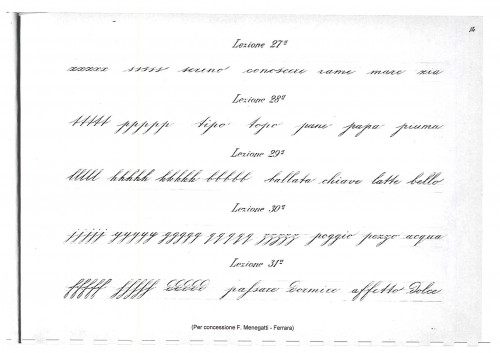 Lezione 27ª
xxxxx sssss sereno conoscere rame mare
Lezione 28ª
ttttt ppppp tipo topo pane papa piuma
Lezione 29ª
lllll hhhhh kkkkk bbbbb ballata chiave latte bello
Lezione 30ª
jjjjj yyyyy ggggg qqqqq zzzzz poggio pezzo acqua
Lezione 31ª
fffff ddddd passare dormire affetto dolce
(Per concessione F. Menegatti - Ferrara)